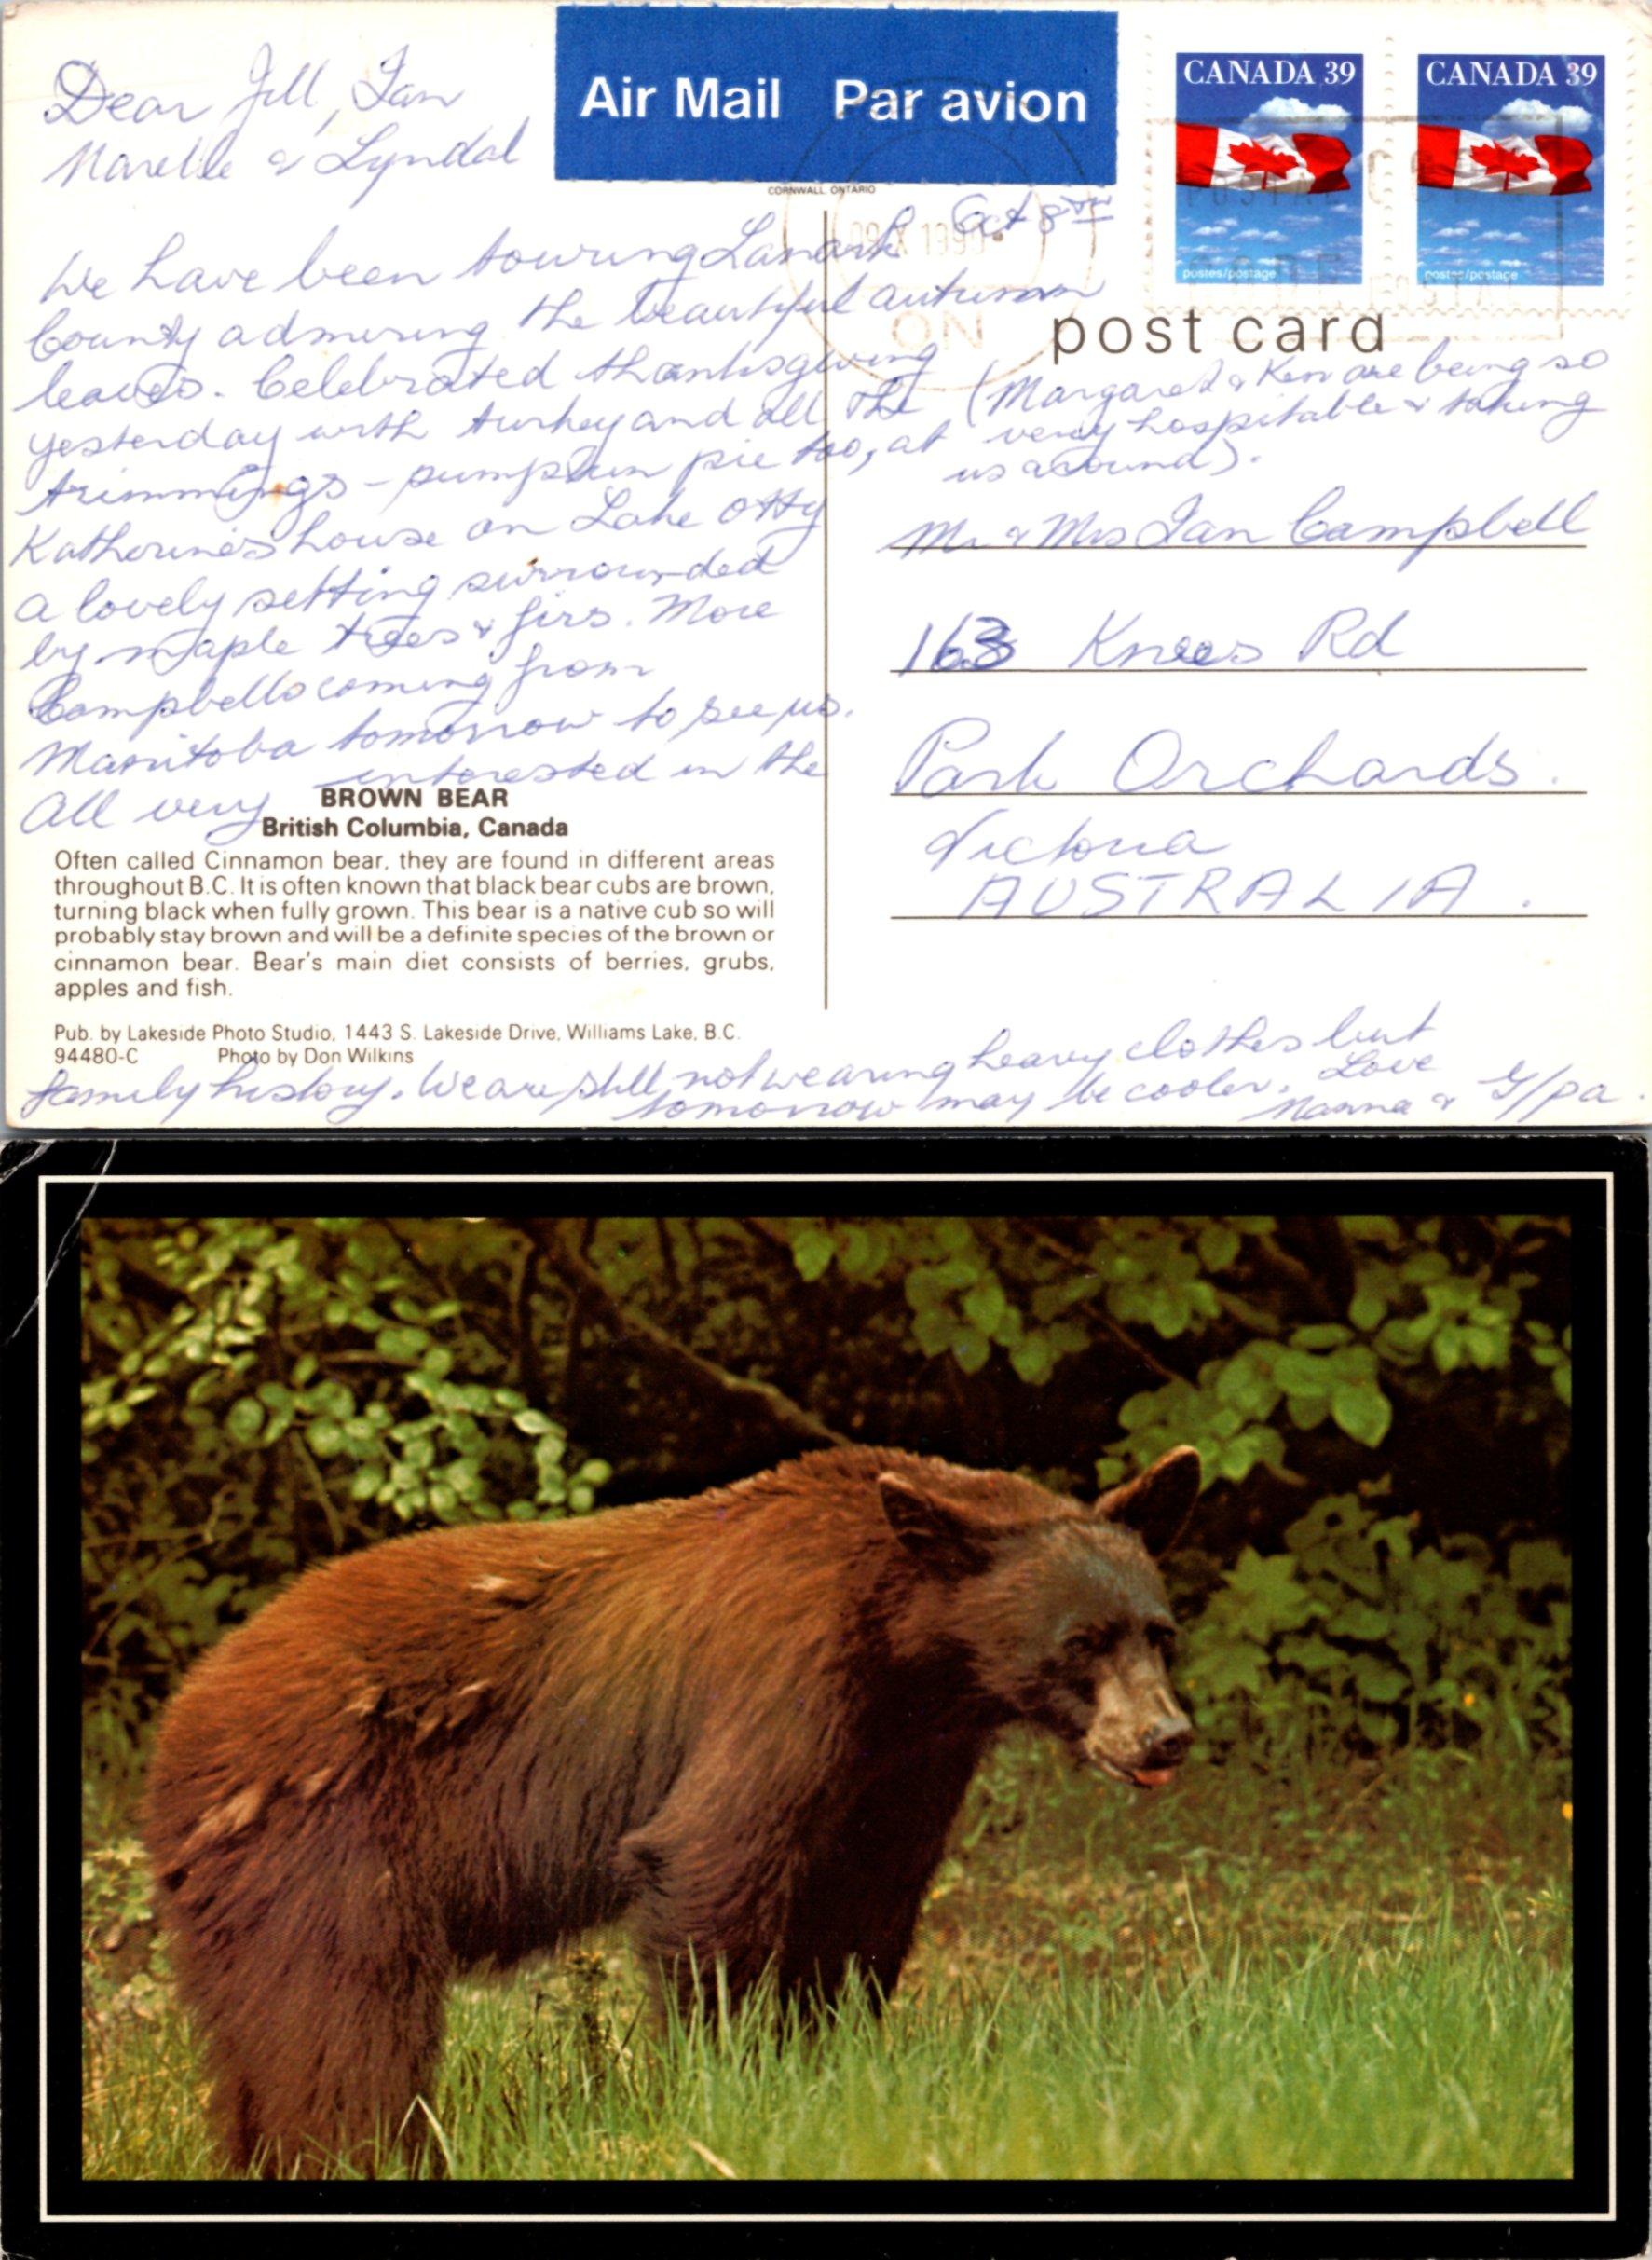 Dear Jill, Ian
Narelle & Lyndal
Air Mail Par avion
CORNWALL ONTARIO
CANADA 39
postes/postage
CANADA 39
postes/postage
09 X 1990
ON
POSTAL CODE
CODE POSTAL
Oct 8TH
post card
We have been touring Lanark
County admiring the beautiful autumn
leaves. Celebrated thanksgiving
yesterday with turkey and all the
trimmings - pumpkin pie too, at
Katherine's house on Lake Otty
a lovely setting surrounded
by maple trees & firs. More
Campbells coming from
Manitoba tomorrow to see us.
All very interested in the
family history. We are still not wearing heavy clothes but
tomorrow may be cooler. Love
Nanna & G/pa.
(Margaret & Ken are being so
very hospitable & taking
us around).
Mr & Mrs Ian Campbell
163 Knees Rd
Park Orchards.
Victoria
AUSTRALIA.
BROWN BEAR
British Columbia, Canada
Often called Cinnamon bear, they are found in different areas
throughout B.C. It is often known that black bear cubs are brown,
turning black when fully grown. This bear is a native cub so will
probably stay brown and will be a definite species of the brown or
cinnamon bear. Bear's main diet consists of berries, grubs,
apples and fish.
Pub. by Lakeside Photo Studio, 1443 S. Lakeside Drive, Williams Lake, B.C.
94480-C Photo by Don Wilkins